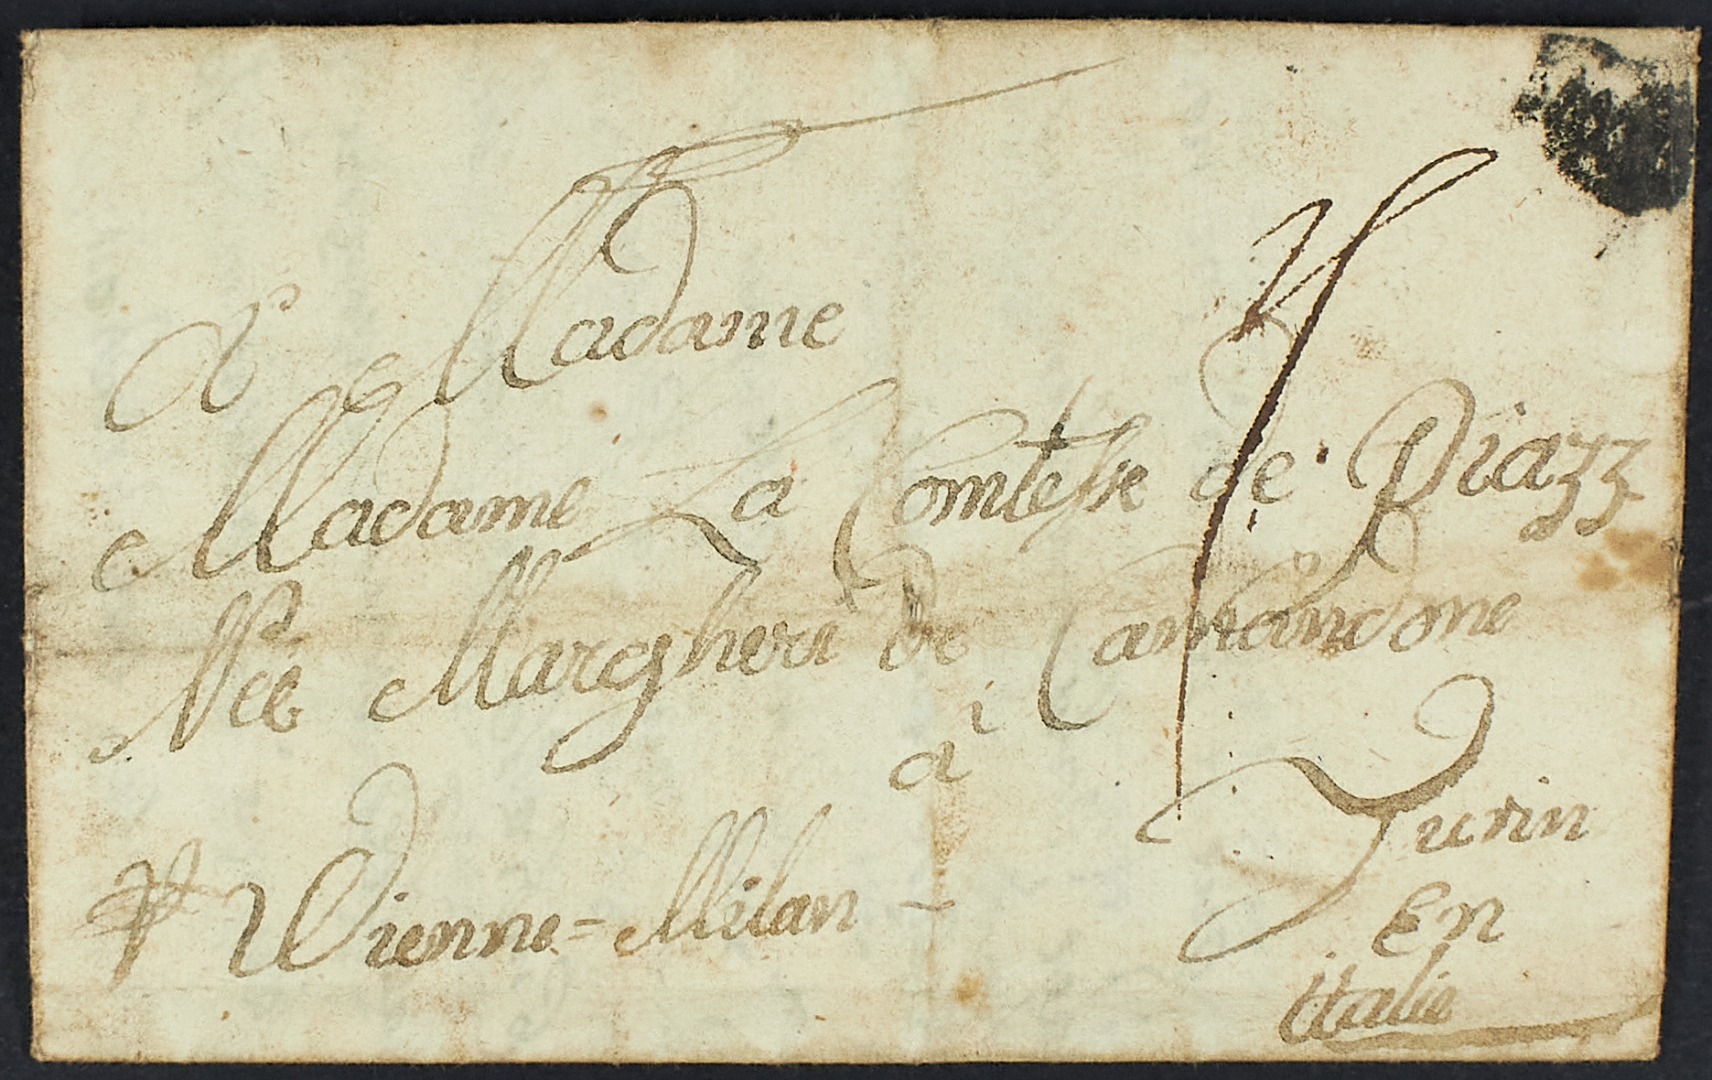 A Madame
Madame La Comtesse de Piazz
Née Margheri De
à Turin
P Vienne = Milan -
En
italie